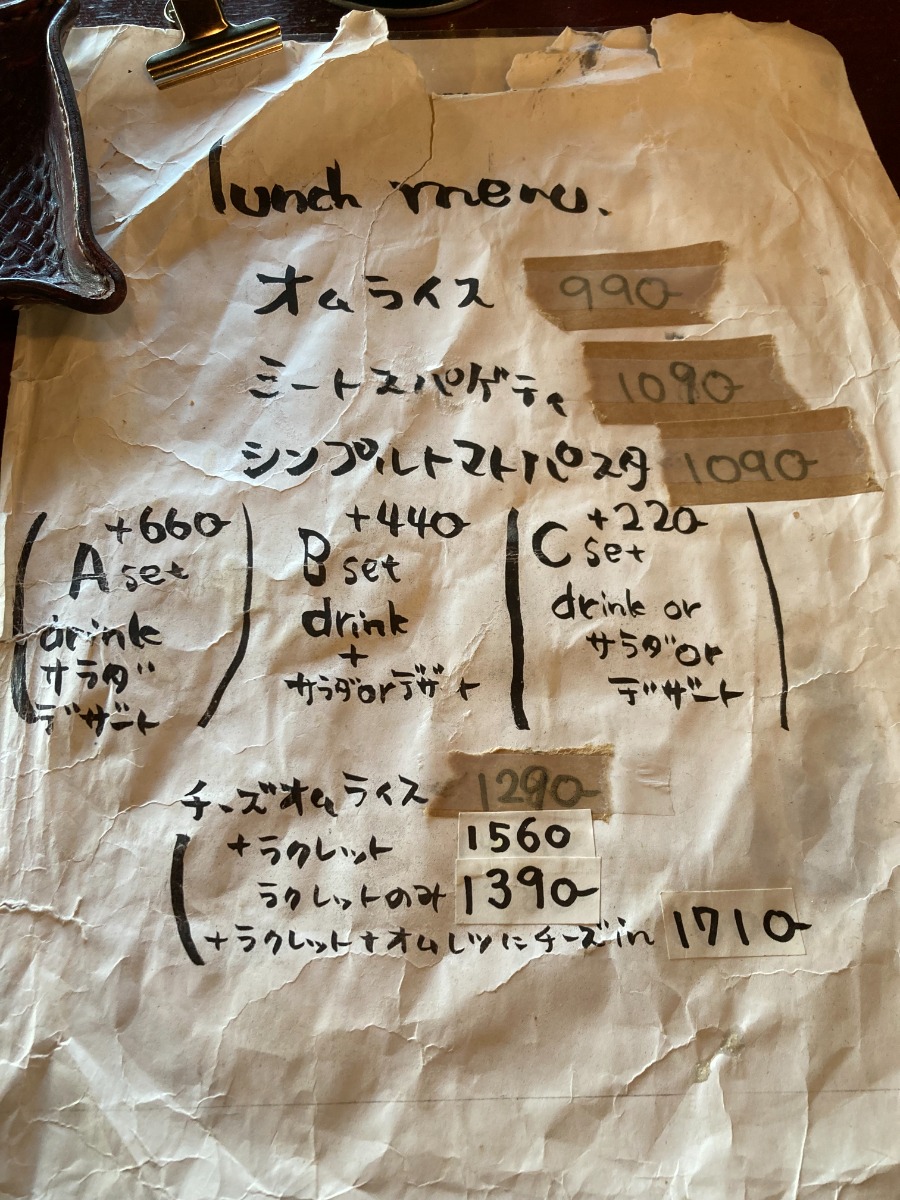 lunch menu.
オムライス 990-
ミートスパゲティ 1090-
シンプルトマトパスタ 1090-
+660-
A set
drink
サラダ
デザート
+440-
B set
drink
+
サラダorデザート
+220-
C set
drink or
サラダor
デザート
チーズオムライス 1290-
+ラクレット 1560
ラクレットのみ 1390-
+ラクレット+オムレツにチーズin 1710-